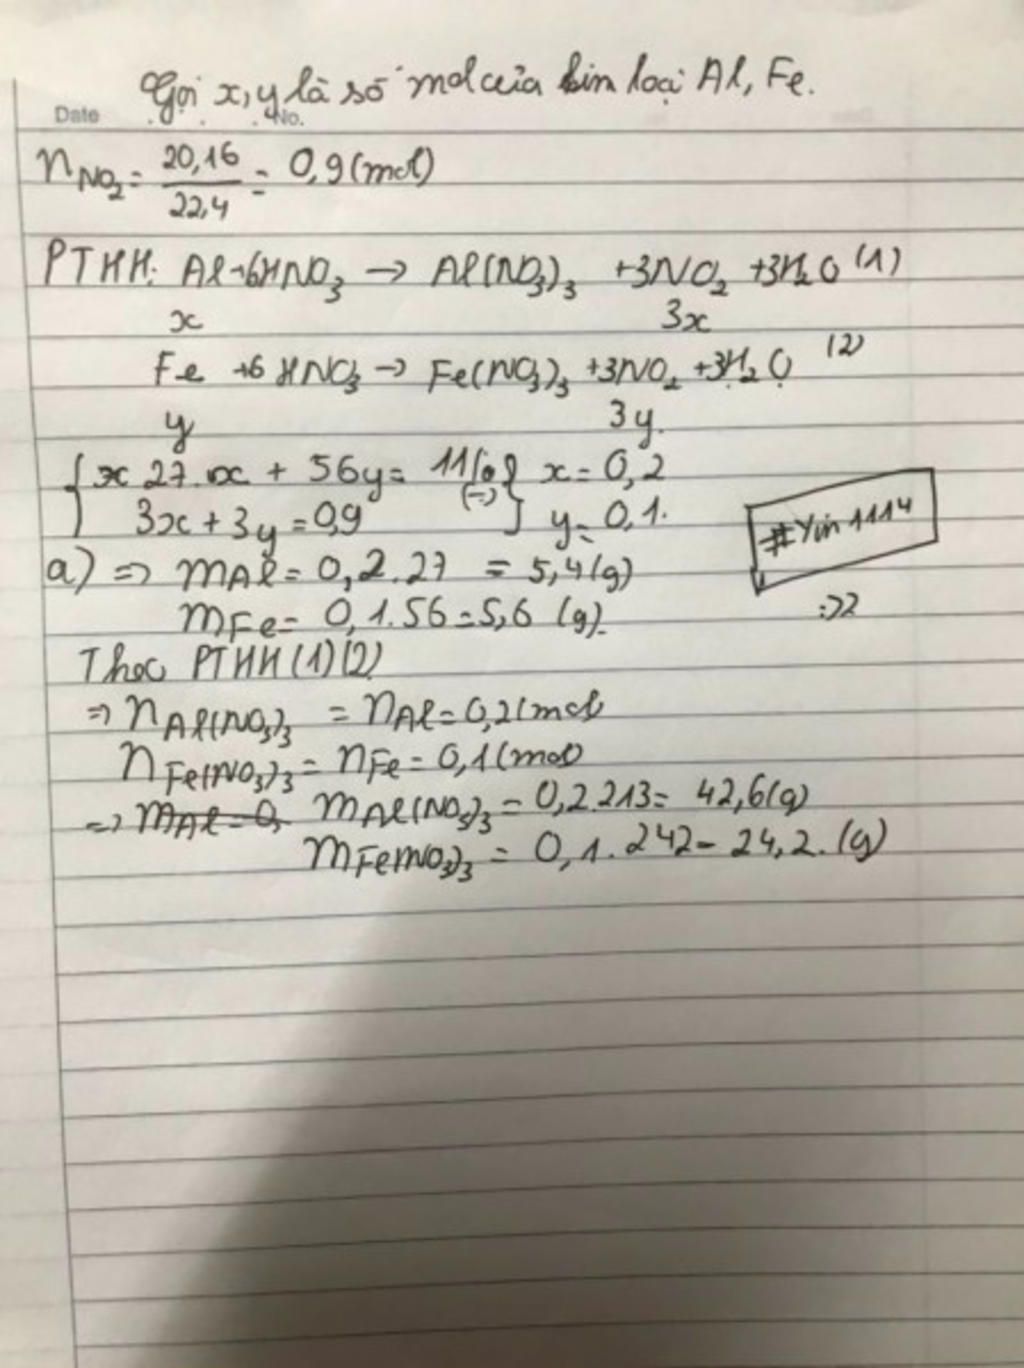 Gọi x, y là số mol của kim loại Al, Fe.
Date No.
n NO₂ = 20,16 / 22,4 = 0,9 (mol)
PTHH: Al + 6HNO₃ → Al(NO₃)₃ + 3NO₂ + 3H₂O (1)
x 3x
Fe + 6 HNO₃ → Fe(NO₃)₃ + 3NO₂ + 3H₂O (2)
y 3y.
{ 27.x + 56y = 11 (=>) } x = 0,2
3x + 3y = 0,9 y = 0,1.
#Yin1114
a) => mAl = 0,2.27 = 5,4 (g)
mFe = 0,1.56 = 5,6 (g).
:>2
Theo PTHH (1) (2)
=> nAl(NO₃)₃ = nAl = 0,2 (mol)
nFe(NO₃)₃ = nFe = 0,1 (mol)
=> mAl = 0, mAl(NO₃)₃ = 0,2.213 = 42,6 (g)
mFe(NO₃)₃ = 0,1.242 = 24,2. (g)